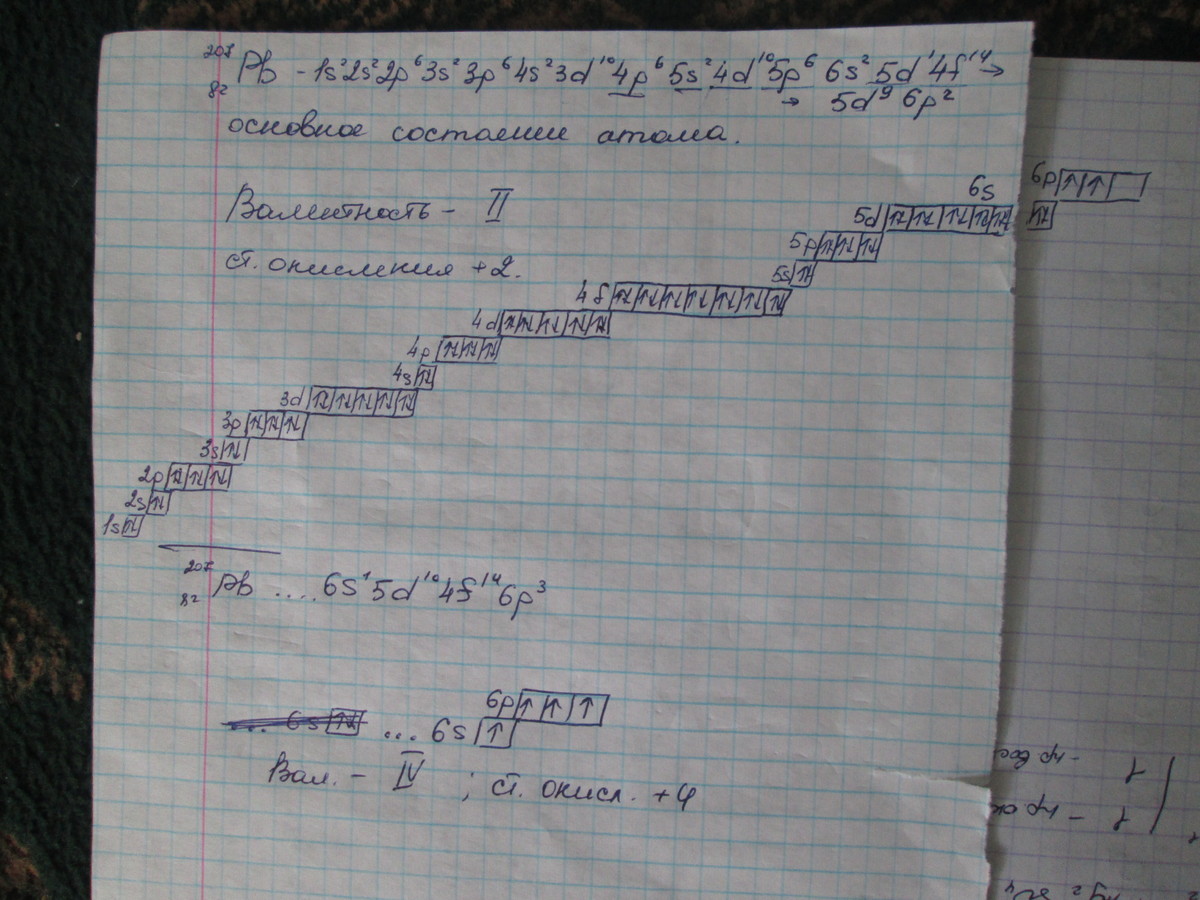 ²⁰⁷₈₂Pb - 1s²2s²2p⁶3s²3p⁶4s²3d¹⁰4p⁶5s²4d¹⁰5p⁶ 6s²5d¹4f¹⁴→
→ 5d⁹ 6p²
основное состоение атома.
Валентность - II
ст. окисления +2.
6p ↑ ↑
6s ↑↓
5d ↑↓ ↑↓ ↑↓ ↑↓ ↑↓
5p ↑↓ ↑↓ ↑↓
5s ↑↓
4f ↑↓ ↑↓ ↑↓ ↑↓ ↑↓ ↑↓ ↑↓
4d ↑↓ ↑↓ ↑↓ ↑↓ ↑↓
4p ↑↓ ↑↓ ↑↓
4s ↑↓
3d ↑↓ ↑↓ ↑↓ ↑↓ ↑↓
3p ↑↓ ↑↓ ↑↓
3s ↑↓
2p ↑↓ ↑↓ ↑↓
2s ↑↓
1s ↑↓
²⁰⁷₈₂Pb ....6s¹5d¹⁰4f¹⁴6p³
6p ↑ ↑ ↑
... 6s ↑↓ ... 6s ↑
Вал. - IV ; ст. окисл. +4